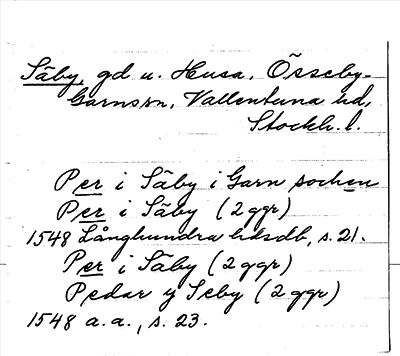 Säby, gd u. Husa, Össeby-
Garns sn, Vallentuna hd,
Stockh. l.
Per i Säby i Garn sochen
Per i Säby (2 ggr)
1548 Långhundra hdsdb, s. 21.
Per i Säby (2 ggr)
Pedar y Seby (2 ggr)
1548 a. a., s. 23.